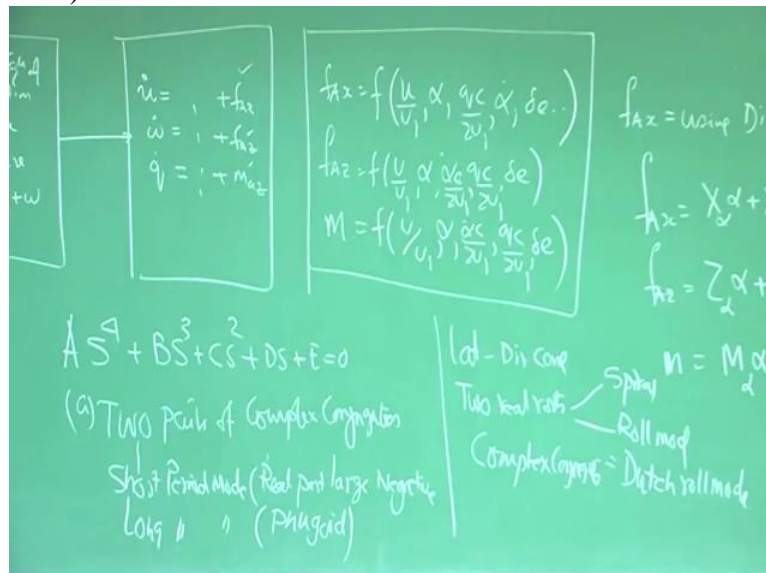 +w
u̇ = , + f_ax ✓
ẇ = ; + f_az
q̇ = ; + m_az
f_Ax = f(u/u₁, α, qc/2u₁, α̇, δe..)
f_Az = f(u/u₁, α, α̇c/2u₁, qc/2u₁, δe)
M = f(u/u₁, α, α̇c/2u₁, qc/2u₁, δe)
f_Ax = using Di
f_Ax = X_α α +
f_Az = Z_α α +
m = M_α α
AS⁴ + BS³ + CS² + DS + E = 0
(a) Two pairs of Complex Conjugates
Short Period Mode (Real part large Negative
Long " " (Phugoid)
Lat - Dir case
Two real roots
Spiral
Roll mod
= Dutch roll mode